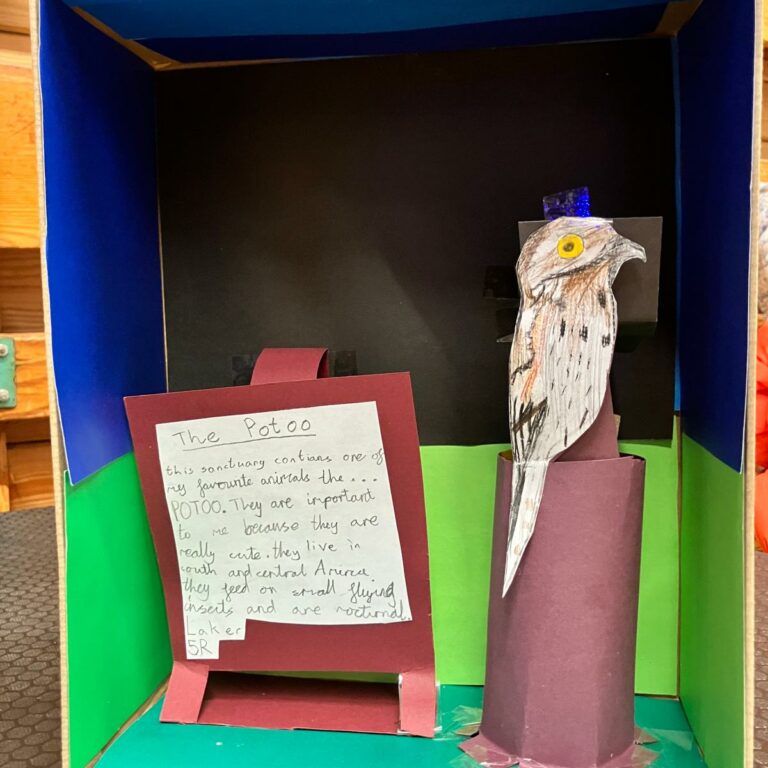 The Potoo
this sanctuary contians one of
my favourite animals the...
POTOO. They are important
to me because they are
really cute. they live in
south and central America.
they feed on small flying
insects and are noctional.
Laker
5R